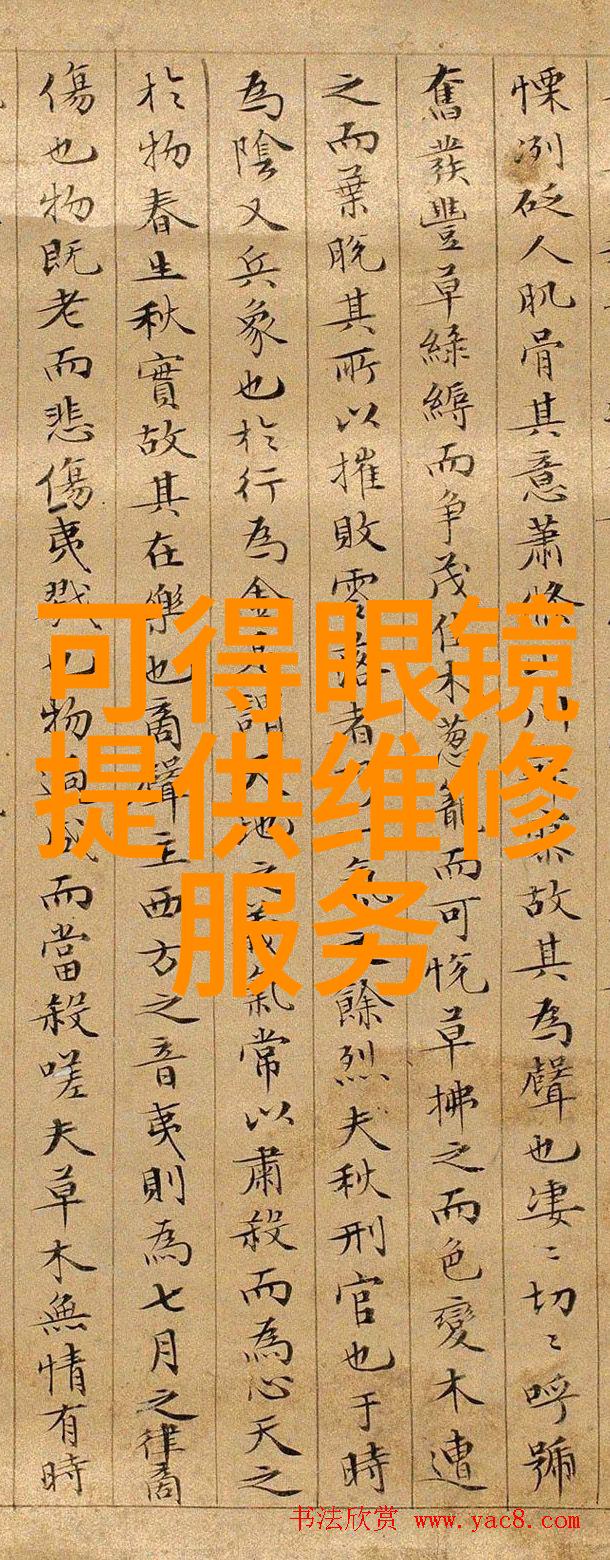 慄冽砭人肌骨其意蕭條川故其為聲也凄〻切〻呼號
奮發豐草綠縟而争茂佳木葱蘢而可悅草拂之而色變木遭
之而葉脫其所以摧敗零落者一氣餘烈夫秋刑官也于時
為陰又兵象也於行為金是謂天地之義氣常以肅殺而為心天之
於物春生秋實故其在樂也商聲主西方之音夷則為七月之律商
傷也物既老而悲傷夷戮也物過盛而當殺嗟夫草木無情有時
可得眼镜
提供维修
服务
书法欣赏 www.yac8.com